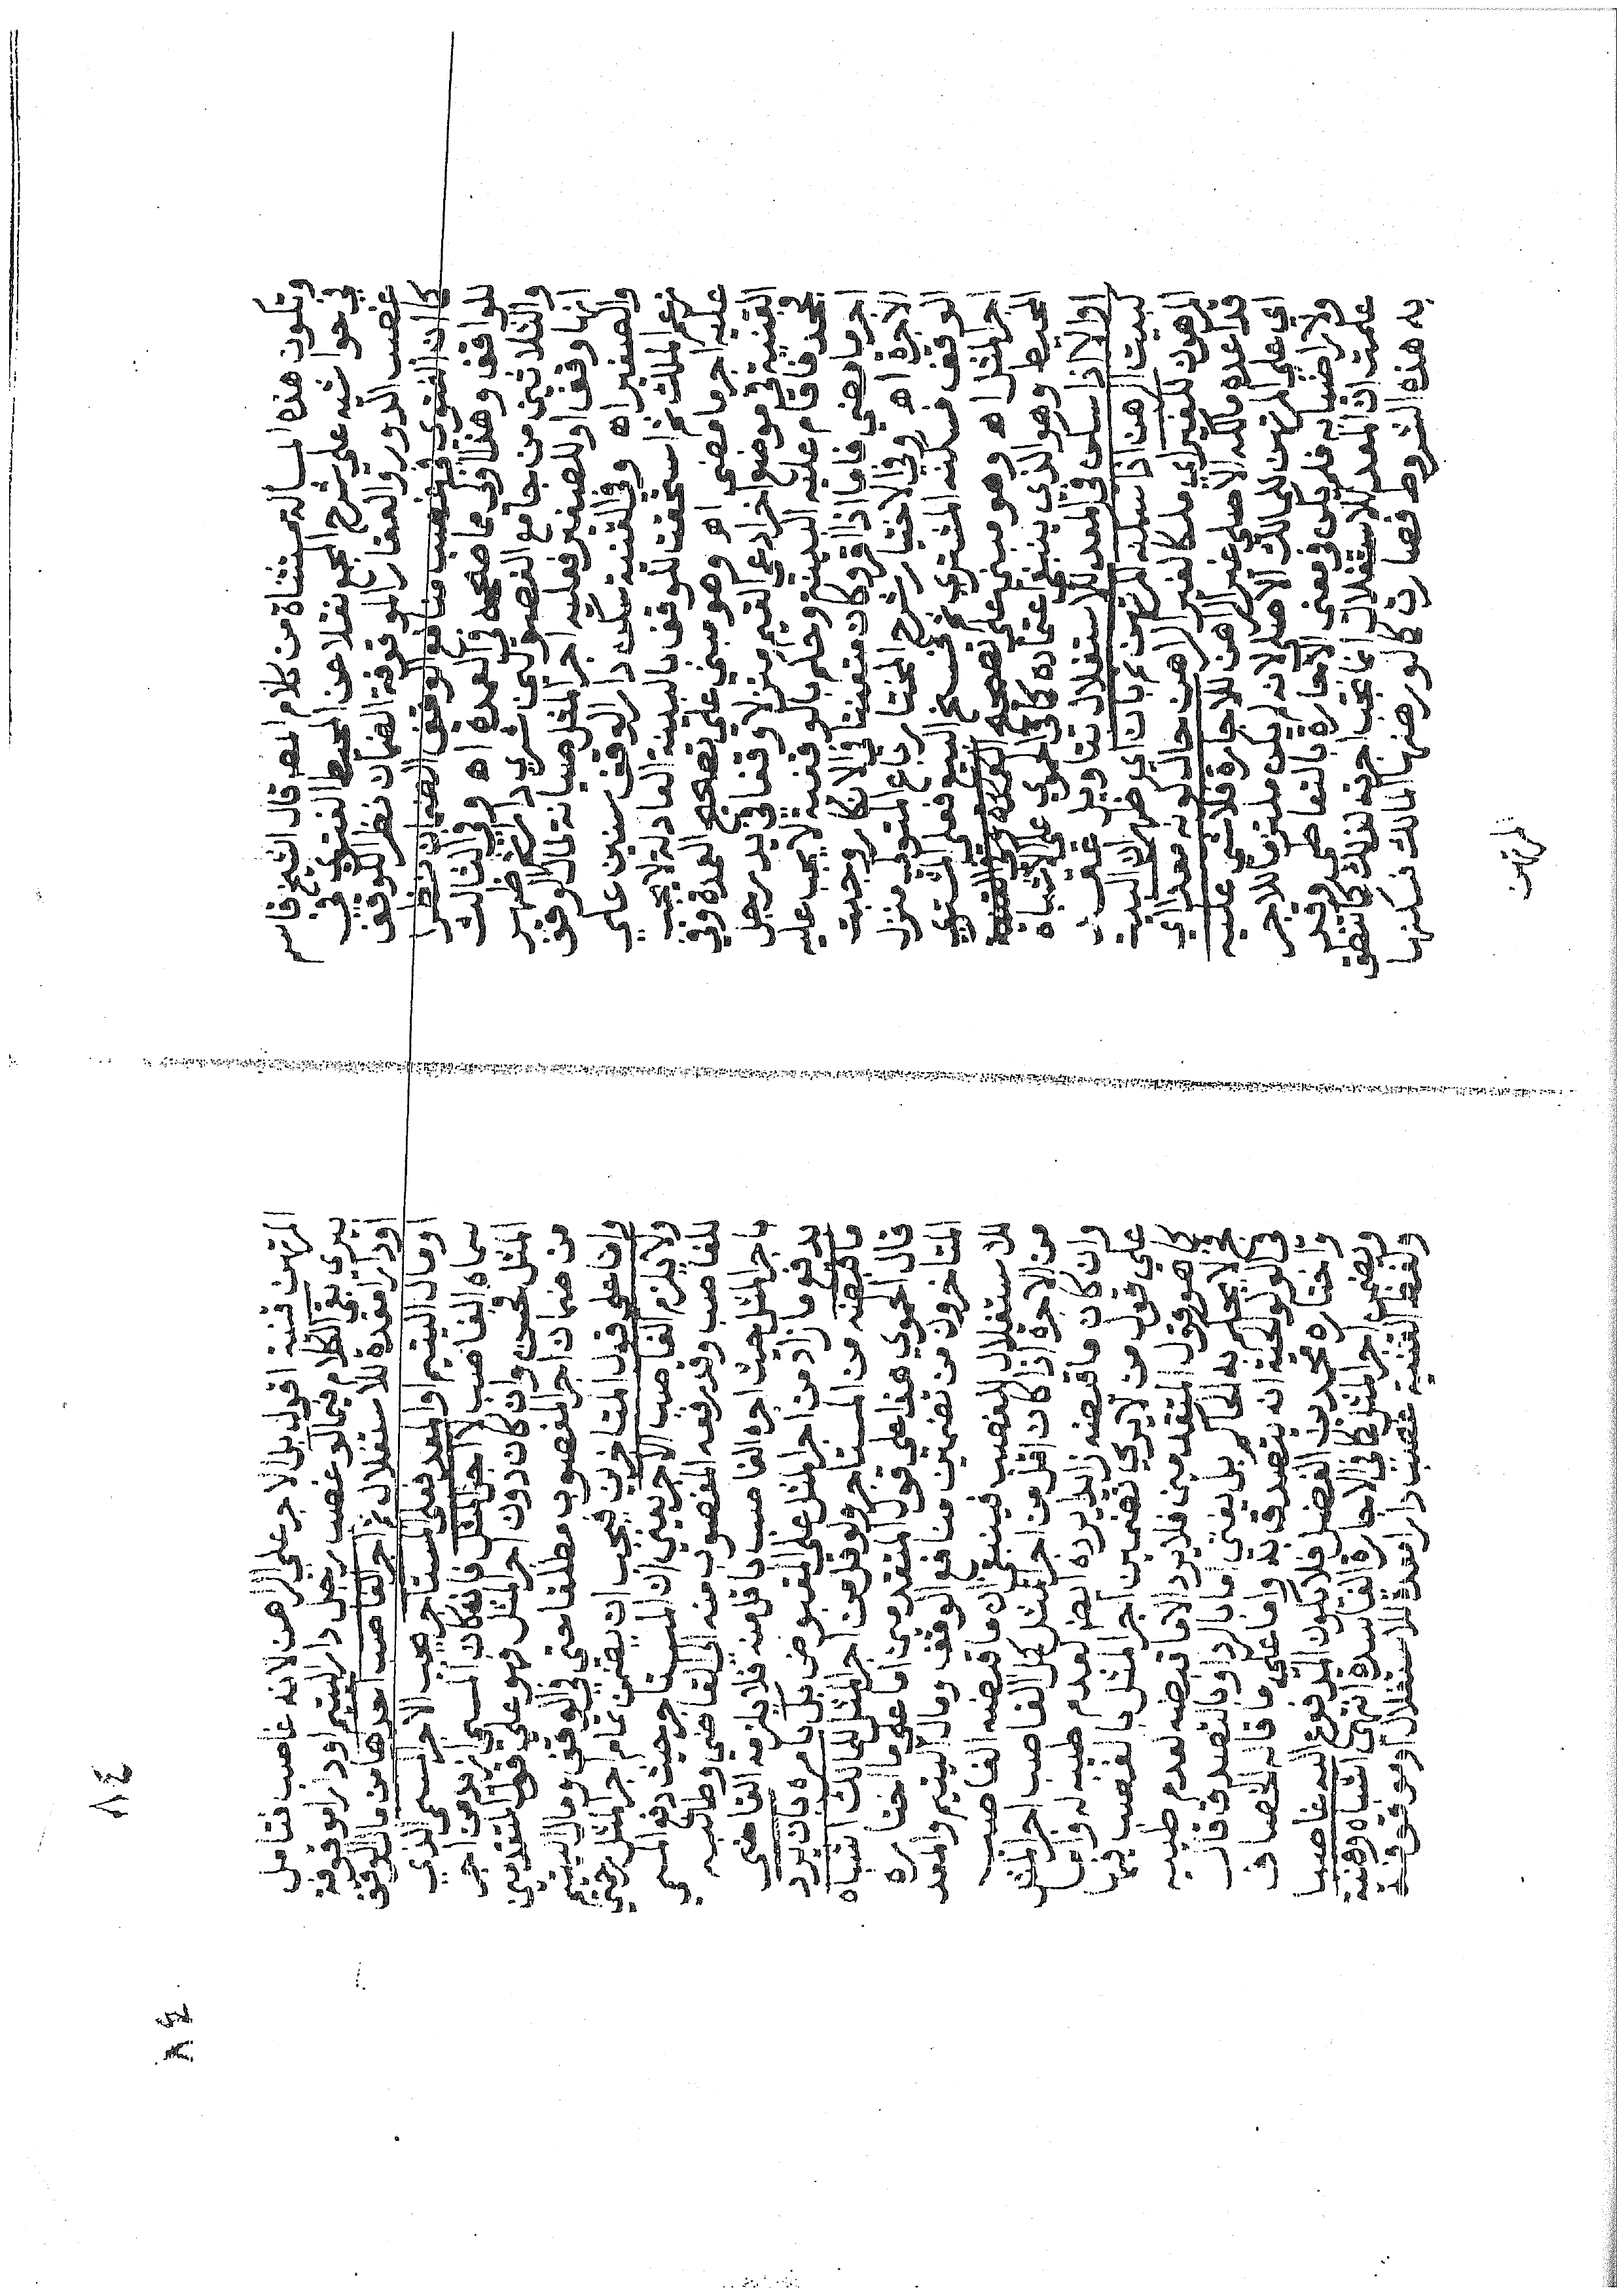 وتكون هذه المسالة مستثناة من كلام المص قال الشيخ قاسم
في حواشيه على شرح المجمع نقلا عن المحيط الفتوى في
غصب الدور والعقار الموقوفة الضمان نظر للوقف
كما ان الفتوى في غصب منافع الوقف الضمان نظرا
للواقف وهذا اولى مما صححه في العمدة اه وفي الثالث
والثلاثين من جامع الفصولين شرى دارا ثم ظهر
انها وقف او للصغير فعليه اجر المثل صيانة لمال الوقف
والصغير اه وفي القنية سكن دار الوقف سنين على
زعم الملك ثم استحقت للوقف بالبينة العادلة لا يجب
عليه اجر ما مضى اه وهو مبني على تصحيح العمدة وفي
القنية في موضع اخر ادعى القيم منزلا وقفا في يد رجل
فجحد فاقام عليه البينة وحكم بالوقفية لا يجب عليه
اجر ما مضى فاما اذا اقر وكان متعنتا في الانكار وجبت
الاجرة اه وفي الاختيار شرح المختار باع المتولي منزل
الوقف فسكنه المشتري ثم فسخ البيع فعلى المشتري
اجر المثل اه وهو مبني على تصحيح
المحيط وهو الذي ينبغي اعتماده كما في الحموي على الاشباه
اولا اذا سكن في المعد للاستغلال بتاويل عقد
كبيت الرهن اذا سكنه المرتهن ثم بان اي ظهر ان البيت
المرهون للغير اي ملكا لغير الراهن حال كونه معدا اي
قد اعده مالكه الاصلي غير الراهن للاجارة فلا شي عليه
اي على المرتهن للمالك الاصلي لانه لم يكن ملتزما للاجر
ولا راضيا به فلم يكن في معنى الاجارة بالتعاطي وقد
علمت ان المعد للاستغلال انما يجب اجرته لذلك كما نطق
به هذه الشروط فصارت كما لو رهنها المالك فسكنها
المرتهن
المرتهن قنية اقول بل الاجر على الراهن لانه غاصب فتامل
بيري بقي الكلام فيما لو غصب رجل دار اليتيم او دارا موقوفة
او دارا معدة للاستغلال ثم اجر الغاصب احدها من مال الوقف
او مال اليتيم او المعد فعلى المستاجر يجب الاجر المسمى الذي
سماه الغاصب لا اجر المثل فان كان المسمى ازيد من اجر
المثل فحسن وان كان دون اجر المثل فهو على قول المتقدمين
من ضمان اجر المغصوب مطلقا حتى في الوقف ومال اليتيم
واما على قول المتاخرين فيجب ان يضمن تمام اجر المثل رحمتي
ولا يلزم الغاصب الاجر يعني ان المستاجر حيث دفع المسمى
للغاصب وقد رفعه المغصوب منه الى القاضي وطالبه
باجر المثل حيث اجره الغاصب باقل منه فلا يلزمه القاضي
بدفع ما زاد من اجر المثل على المقبوض بل يامره بان يرد
ما قبضه من المستاجر ولو اقل من اجر المثل للمالك اشباه
قال الحموي هذا على قول المتقدمين اما على ما اختاره
المتاخرون من تضمين منافع الوقف ومال اليتيم والمعد
للاستغلال للغصب فينبغي ان ما قبضه الغاصب
من الاجرة اذا كان اقل من اجر المثل كمل الغاصب اجر المثل
وان كان ما قبضه زايدا يرده ايضا لعدم طيبه له وايضا
على قول من لا يرى تضمين اجر المثل بالغصب فيما
كما هو قول المتقدمين فلا يرد الا ما قبضه لعدم طيبه
لا يحكم به الحاكم بل يفتى اما بالرد او بالتصدق فقال
في الولوالجية انه يتصدق به واما على ما قاله الخصاف
واختاره محمد بن الفضل فلا يكون المدفوع اليه غاصبا
ويضمن اجر المثل كما في الاجارة الفاسدة انتهى اشباه وقنية
ولفظ القنية غصب دارا معدة للاستغلال او موقوفة
٨٤
٨٤